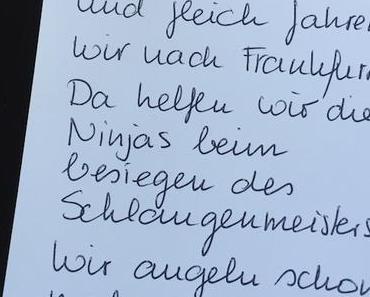 und gleich fahren
wir nach Frankfur
Da helfen wir die
Ninjas beim
besiegen des
Schlangenmeisters
Wir angeln schon